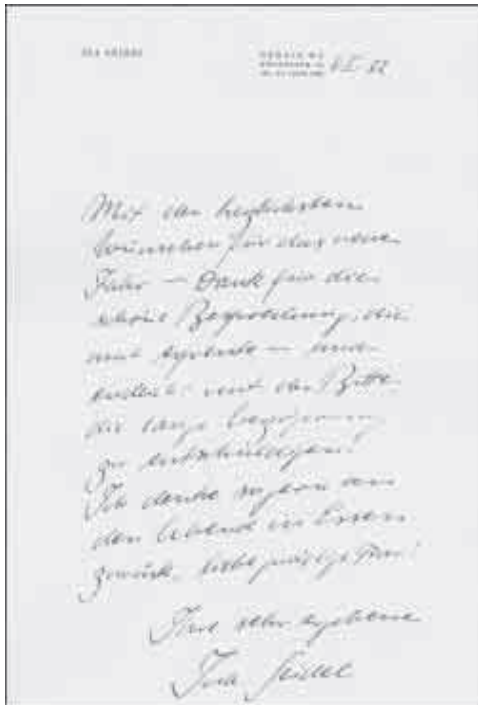 INA SEIDEL
Mit den herzlichsten
Wünschen für das neue
Jahr — Dank für die
schöne Besprechung, die
mich freute — und
endlich mit der Bitte
die lange Verzögerung
zu entschuldigen!
Ich denke so gern an
den Abend in Essen
zurück, liebe gnädige Frau!
Ihre sehr ergebene
Ina Seidel